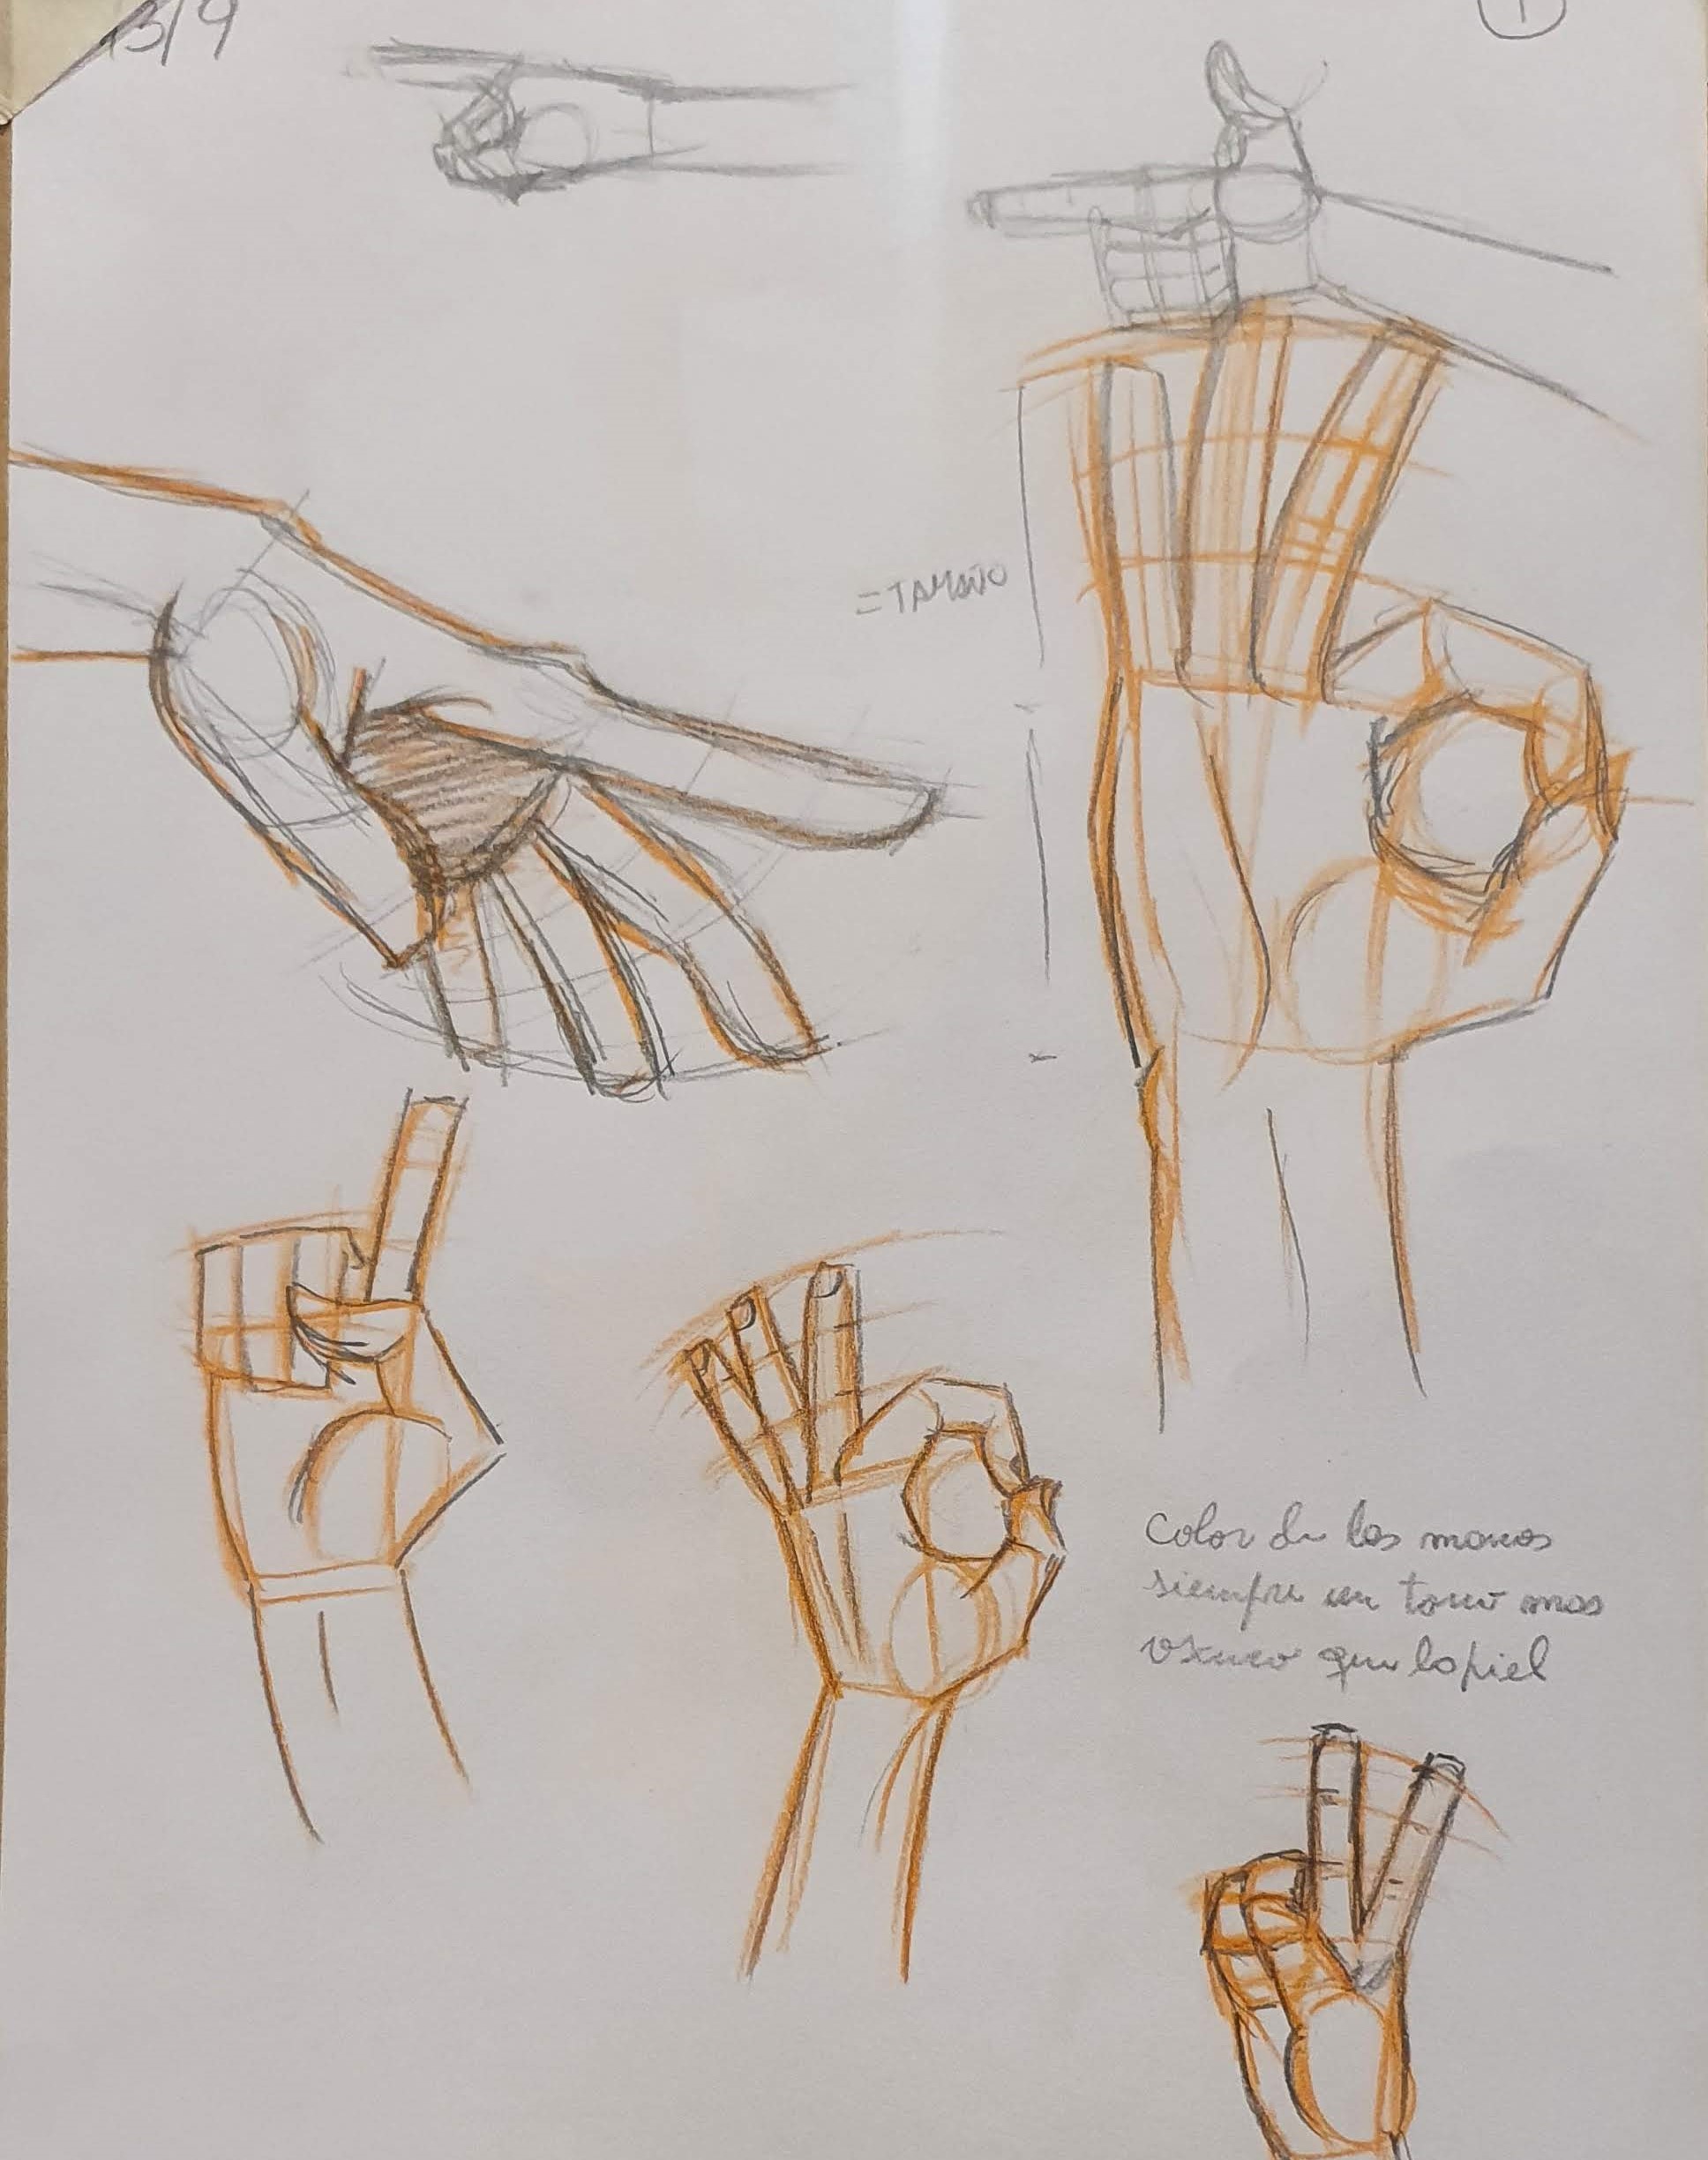 13/9
1
= TAMAÑO
Color de las manos
siempre un tono mas
oscuro que la piel